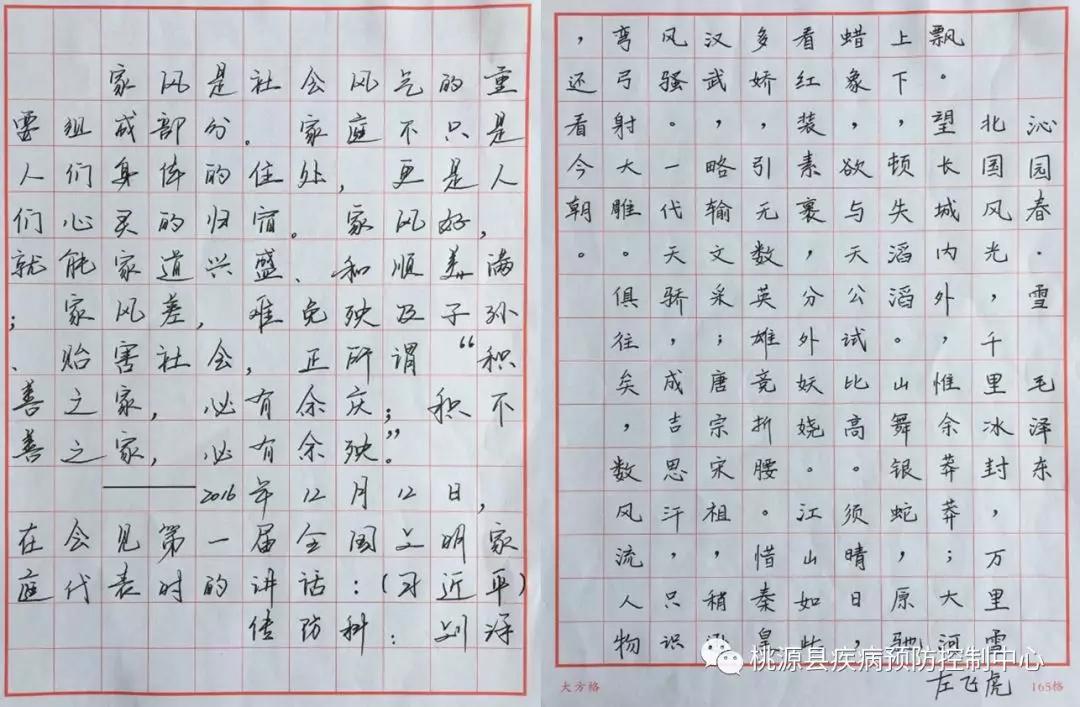 家风是社会风气的重
要组成部分。家庭不只是
人们身体的住处，更是人
们心灵的归宿。家风好，
就能家道兴盛、和顺美满
；家风差，难免殃及子孙
、贻害社会，正所谓“积
善之家，必有余庆；积不
善之家，必有余殃。”
———2016年12月12日，
在会见第一届全国文明家
庭代表时的讲话：（习近平）
传防科：刘
沁园春·雪 毛泽东
北国风光，千里冰封，万里雪
飘。望长城内外，惟余莽莽；大河
上下，顿失滔滔。山舞银蛇，原驰
蜡象，欲与天公试比高。须晴日，
看红装素裹，分外妖娆。江山如此
多娇，引无数英雄竞折腰。惜秦皇
汉武，略输文采；唐宗宋祖，稍逊
风骚。一代天骄，成吉思汗，只识
弯弓射大雕。俱往矣，数风流人物
，还看今朝。
桃源县疾病预防控制中心
大方格
左飞虎
165格